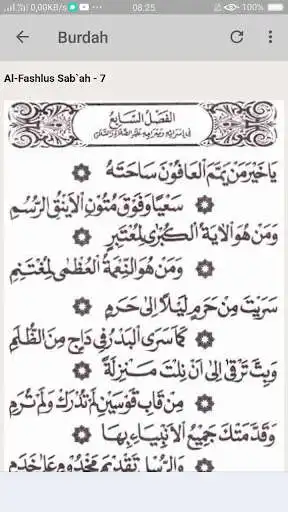 0,00KB/s
08:25
100%
Burdah
Al-Fashlus Sab`ah - 7
الفصل السابع
في إسرائه ومعراجه عليه الصلاة والسلام
يَاخَيْرَمَنْ يَمَّمَ الْعَافُوْنَ سَاحَتَهُ
سَعْيًا وَفَوْقَ مُتُوْنِ الْاَيْنُقِ الرُّسُمِ
وَمَنْ هُوَ الْاٰيَةُ الْكُبْرٰى لِمُعْتَبِرٍ
وَمَنْ هُوَ النِّعْمَةُ الْعُظْمٰى لِمُغْتَنِمِ
سَرَيْتَ مِنْ حَرَمٍ لَيْلًا اِلٰى حَرَمٍ
كَمَا سَرَى الْبَدْرُ فِيْ دَاجٍ مِنَ الظُّلَمِ
وَبِتَّ تَرْقٰى اِلٰى اَنْ نِلْتَ مَنْزِلَةً
مِنْ قَابِ قَوْسَيْنِ لَمْ تُدْرَكْ وَلَمْ تُرَمِ
وَقَدَّمَتْكَ جَمِيْعُ الْاَنْبِيَاءِ بِهَا
وَالرُّسْلِ تَقْدِيْمَ مَخْدُوْمٍ عَلٰى خَدَمِ